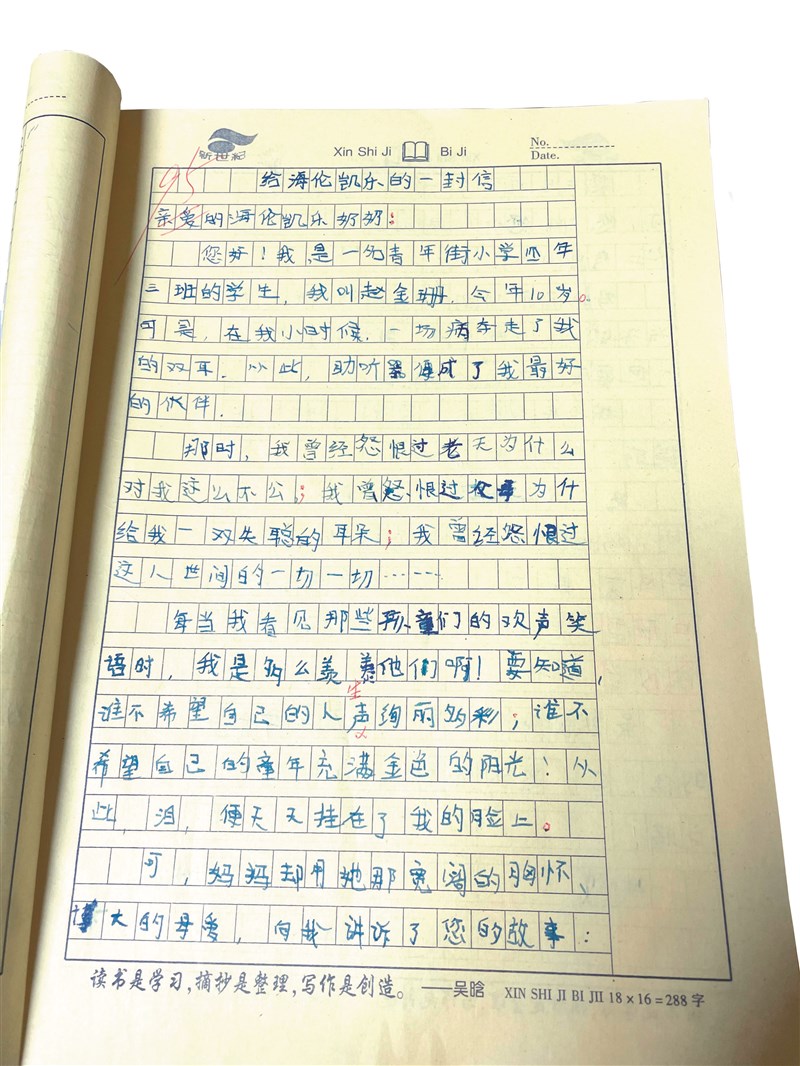 新世纪
Xin Shi Ji Bi Ji
No.
Date.
95
给海伦凯乐的一封信
亲爱的海伦凯乐奶奶：
您好！我是一允青年街小学四年
三班的学生，我叫赵金珊．今年10岁。
可是，在我小时候．一场病夺走了我
的双耳．从此，助听器便成了我最好
的伙伴．
那时，我曾经怨恨过老天为什么
对我这么不公；我曾怨恨过父母为什
给我一双失聪的耳朵；我曾经怨恨过
这人世间的一切一切……
每当我看见那些孩童们的欢声笑
语时，我是多么羡羡他们啊！要知道，
生
谁不希望自己的人声绚丽多彩；谁不
希望自己的童年充满金色的阳光！从
此，泪，便天天挂在了我的脸上。
可，妈妈却用她那宽阔的胸怀、
博大的母爱，向我讲诉了您的故事：
读书是学习，摘抄是整理，写作是创造。——吴晗
XIN SHI JI BI JII 18×16=288字